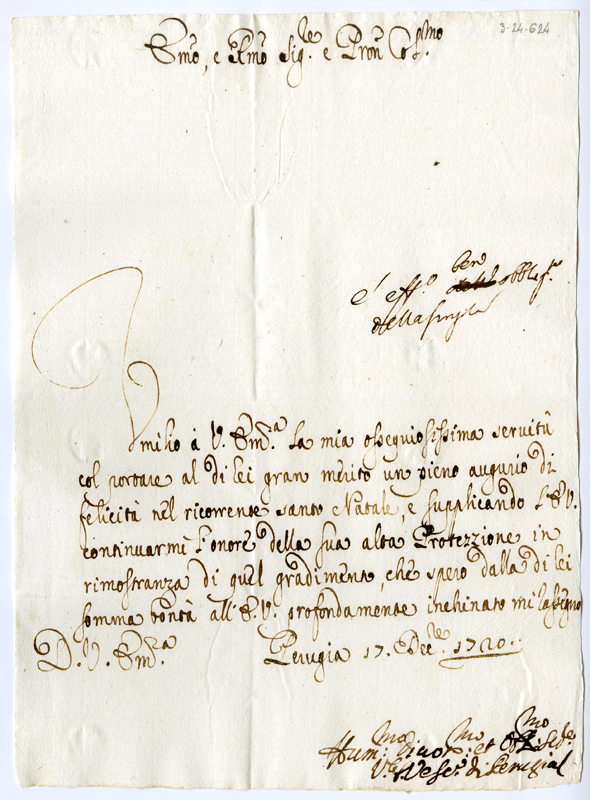 3-24-624
Em̃o, e Rm̃o Sig.re e Pron̄ Col.mo
e aff.o ben obblig.mo
della
Vmilio à V. Em̃.a la mia ossequiosissima servitù
col portare al di lei gran merito un pieno augurio di
felicità nel ricorrente santo Natale, e supplicando l'E.V.
continuarmi l'onore della sua alta Protezzione in
rimostranza di quel gradimento, che spero dalla di lei
somma bontà all'E.V. profondamente inchinato mi rassegno
D. V. Em̃.a
Perugia 17. Dec.re 1720.
Hum.mo Divot.mo et Obb.mo Se.re
V. Vesc.o di Perugia